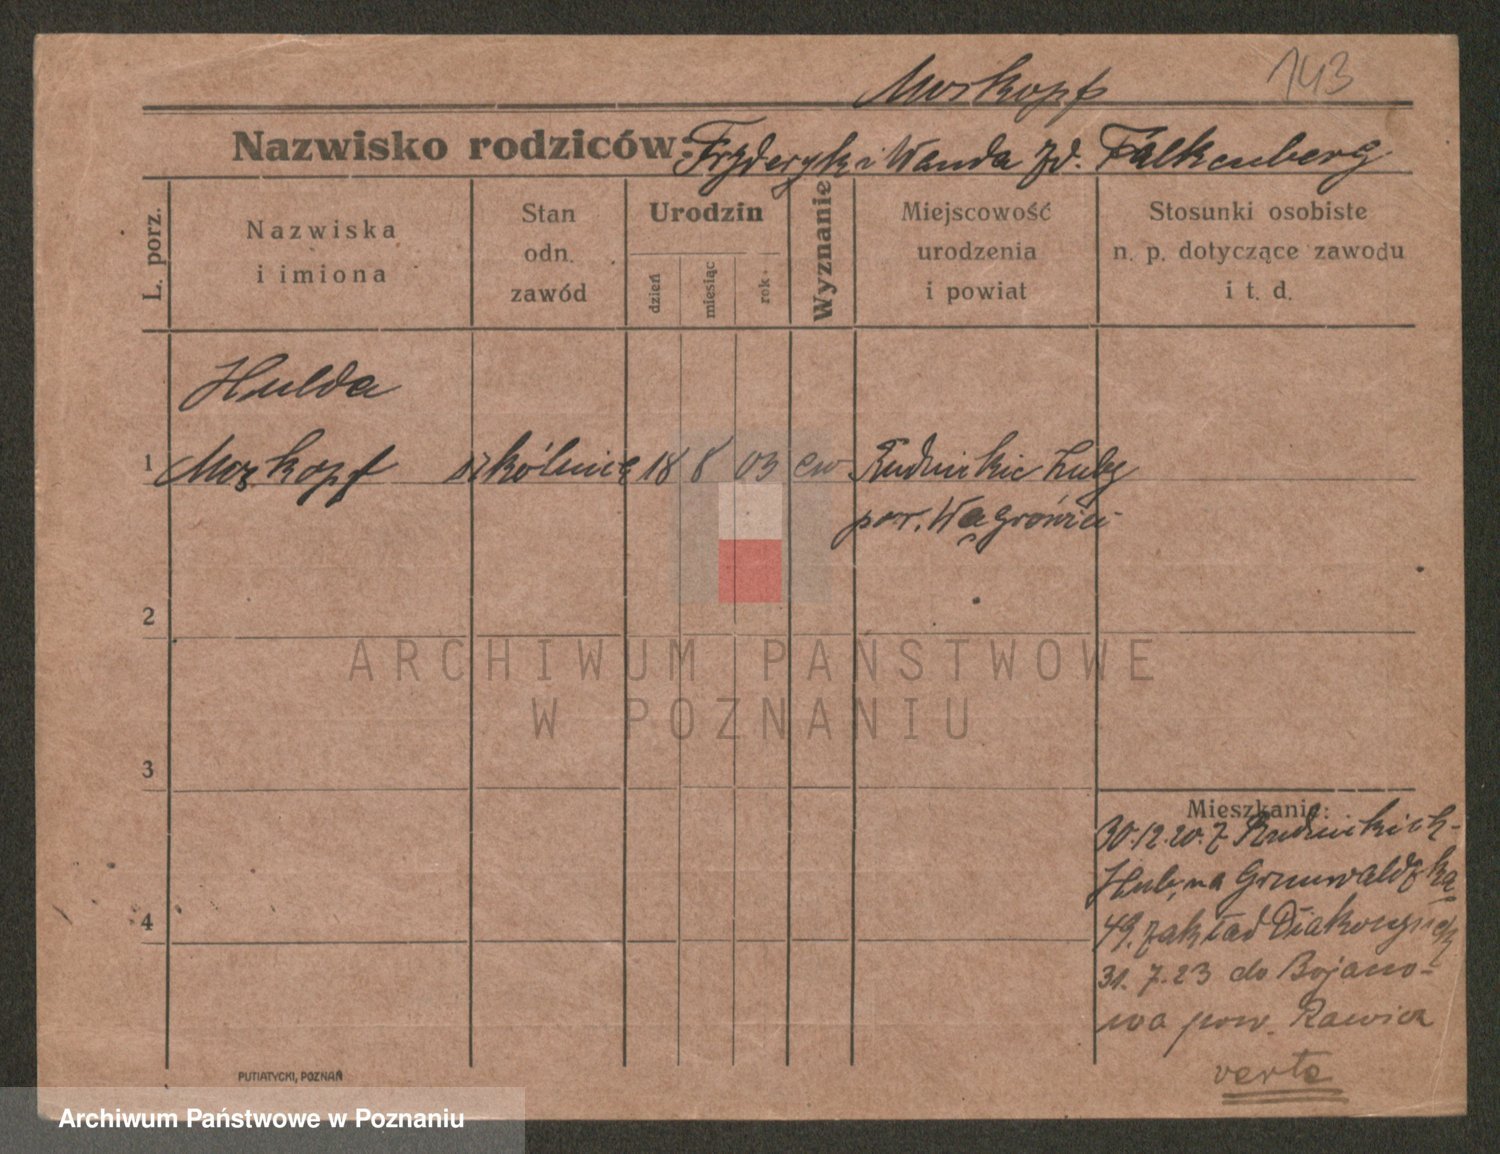 Morkopf 143
Nazwisko rodziców: Fryderyk i Wanda zd. Falkenberg
L. porz.
Nazwiska
i imiona
Stan
odn.
zawód
Urodzin
dzień
miesiąc
rok
Wyznanie
Miejscowość
urodzenia
i powiat
Stosunki osobiste
n. p. dotyczące zawodu
i t. d.
Hulda
1 Morkopf 18 8 03 ew
pow. Wągrówiec
2
ARCHIWUM PAŃSTWOWE
W POZNANIU
3
Mieszkanie:
30.12.20. z Rudnickich-
Hub, na Grunwaldzka
49. zakład
31. 7. 23 do Bojano-
wa pow. Rawicz
4
verte
PUTIATYCKI, POZNAŃ
Archiwum Państwowe w Poznaniu